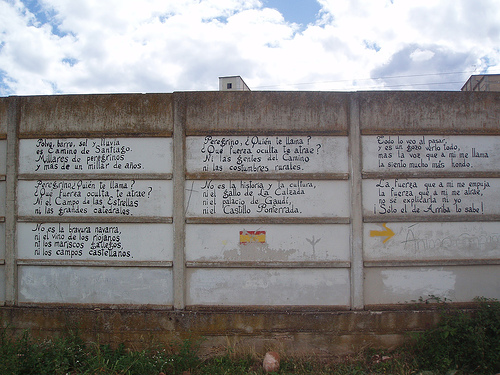 Polvo, barro, sol y lluvia
es Camino de Santiago.
Millares de peregrinos
y más de un millar de años.
Peregrino ¿Quién te llama?
¿Qué fuerza oculta te atrae?
Ni el Campo de las Estrellas
ni las grandes catedrales.
No es la bravura navarra,
ni el vino de los riojanos
ni los mariscos gallegos,
ni los campos castellanos.
Peregrino, ¿Quién te llama?
¿Qué fuerza oculta te atrae?
Ni las gentes del Camino
ni las costumbres rurales.
No es la historia y la cultura,
ni el gallo de La Calzada
ni el palacio de Gaudí,
ni el Castillo Ponferrada.
Todo lo veo al pasar,
y es un gozo verlo todo,
mas la voz que a mi me llama
la siento mucho más hondo.
La fuerza que a mi me empuja
la fuerza que a mi me atrae,
no se explicarla ni yo
Sólo el de Arriba lo sabe!